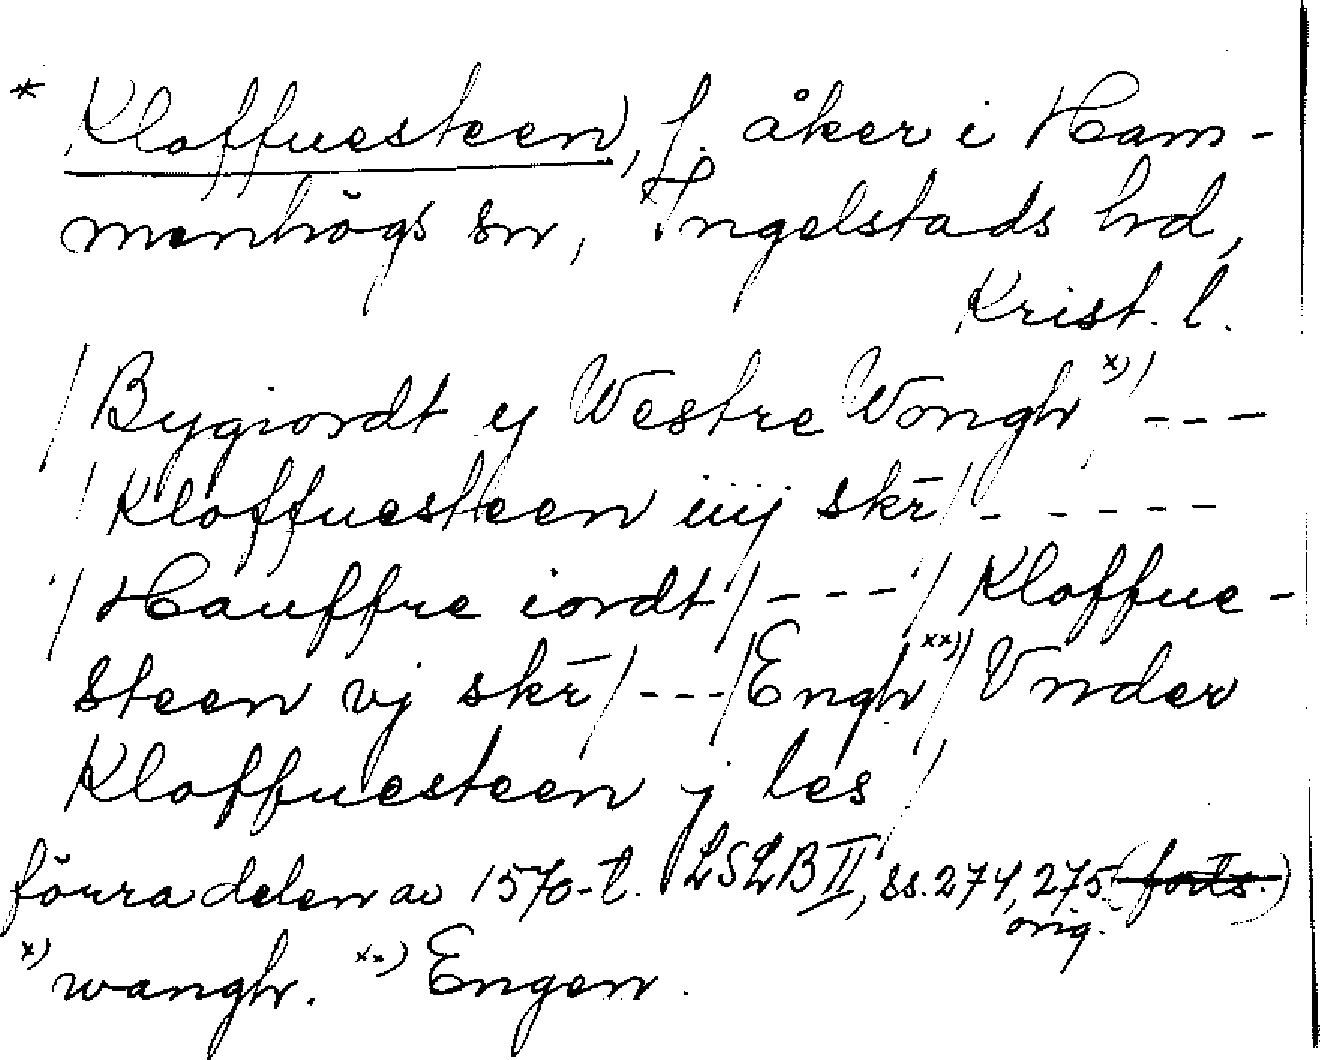 * Kloffuesteen, f. åker i Ham-
menhögs sn, Ingelstads hd,
Krist. l.
/Bygiordt ij Westre Vongh x)/ ---
/Kloffuesteen iiij skr̄/ - - - - -
/Hauffre iordt/ - - - / Kloffue-
steen vj skr̄/ ---/Engh xx)/ Vnder
Kloffuesteen j les /
förra delen av 1570-t. LSLB II, ss. 274, 275 (forts.)
orig.
x) wangh. xx) Engen.